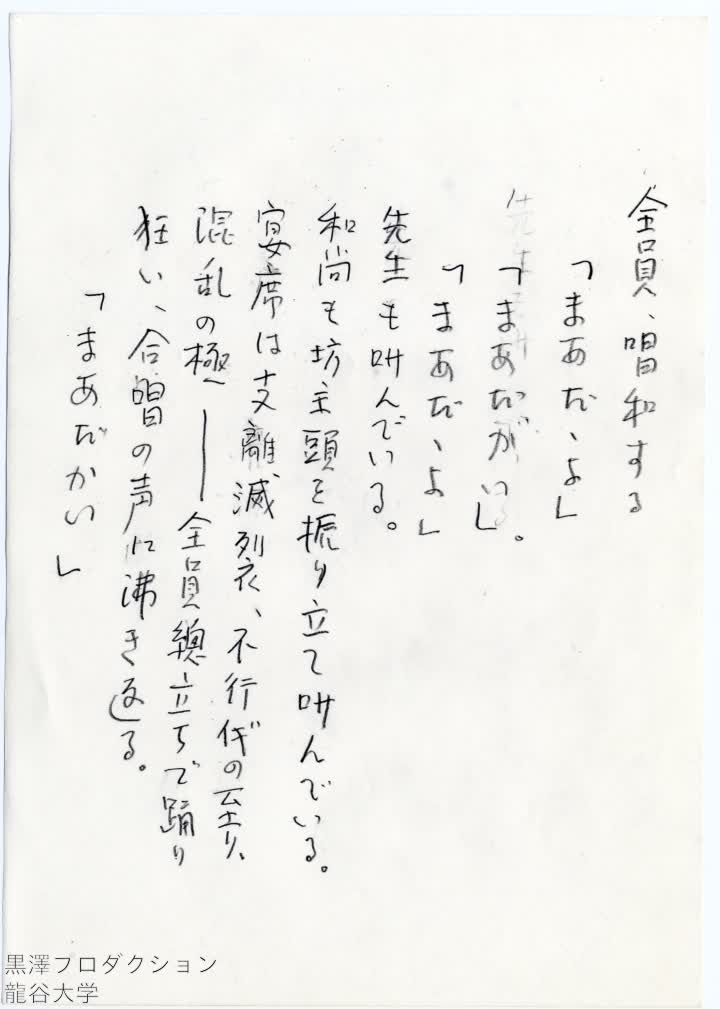 全員、唱和する
「まあだゝよ」
「まあだかい」
「まあだゝよ」
先生も叫んでいる。
和尚も坊主頭を振り立て叫んでいる。
宴席は支離滅列衣、不行儀の至り、
混乱の極――全員總立ちで踊り
狂い、合唱の声に沸き返る。
「まあだかい」
黒澤プロダクション
龍谷大学